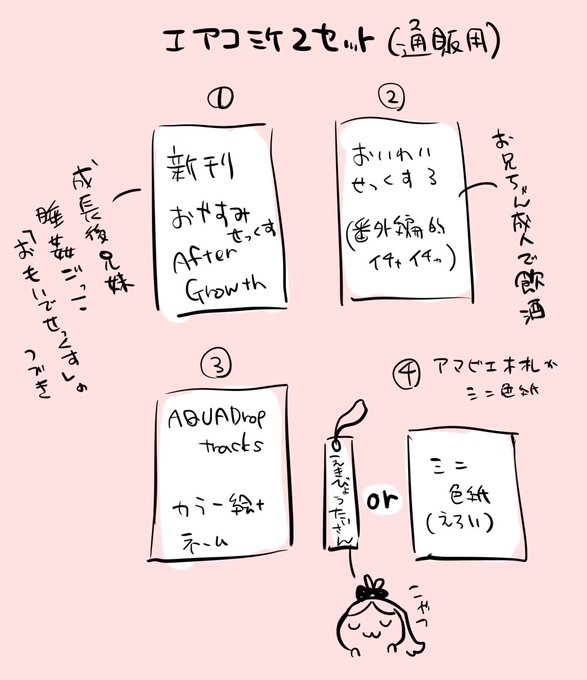 エアコミケ2セット(通販用)
①
新刊
おやすみ
せっくす
After
Growth
成長後兄妹
睡姦ごっこ
「おもいでせっくす」の
つづき
②
おいわい
せっくする
(番外編的
イチャイチャ)
お兄ちゃん成人で飲酒
③
AQUADrop
tracks
カラー絵+
ネーム
④ アマビエ木札か
ミニ色紙
えきびょうたいさん
or
ミニ
色紙
(えろい)
こやつ